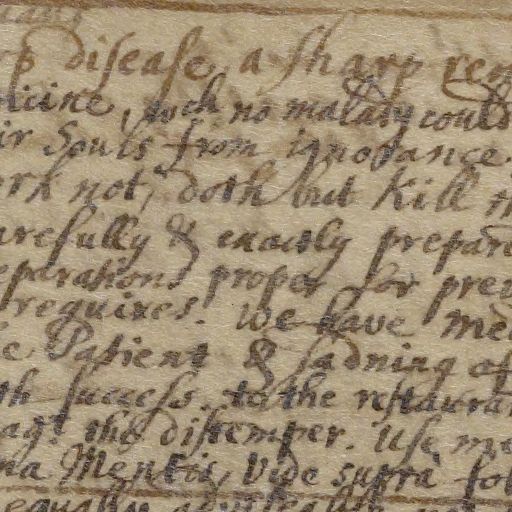 disease, a sharp
no malady could
Souls from ignorance
not, doth but Kill
carefully & exactly prepar
preparations proper for prev
requires. We have med
Patient & sadning of
th success. to the restaura
ag: ths distemper. Use me
na Mentis, Vide supra fol
equally